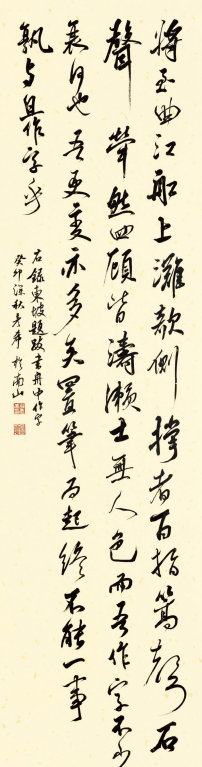 將至曲江船上灘欹側撐者百指篙聲石
聲犖然四顧皆濤瀨士無人色而吾作字不少
衰何也吾更變亦多矣置筆而起終不能一事
孰与且作字乎
右錄東坡題跋書舟中作字
癸卯深秋於南山